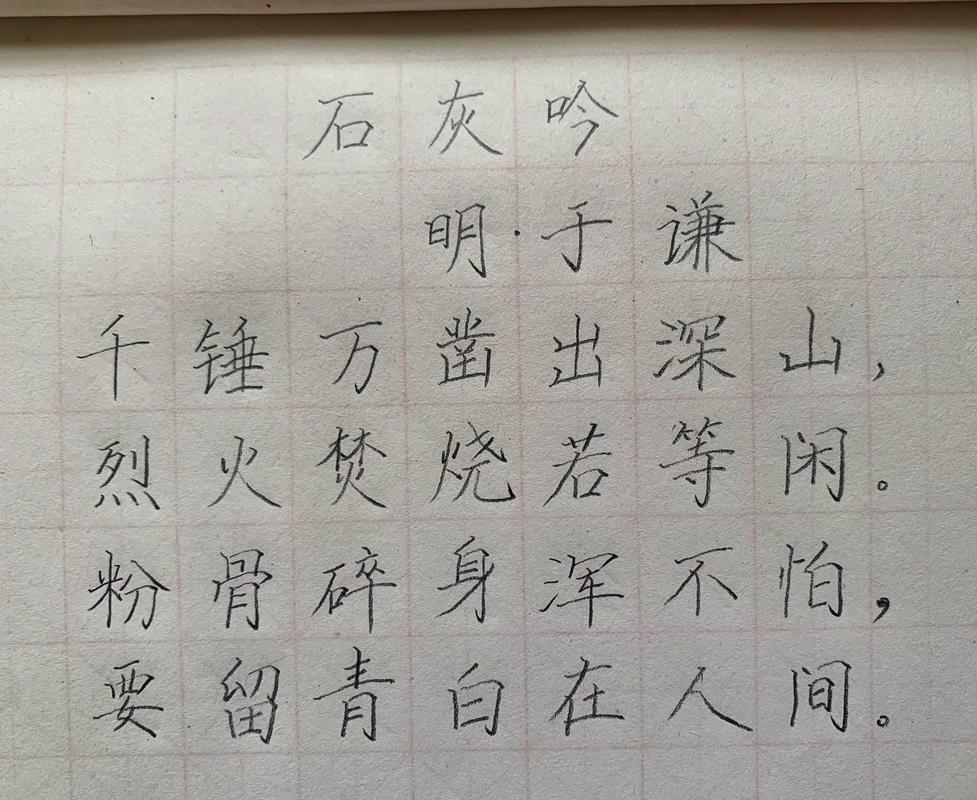 石灰吟
明·于谦
千锤万凿出深山，
烈火焚烧若等闲。
粉骨碎身浑不怕，
要留青白在人间。